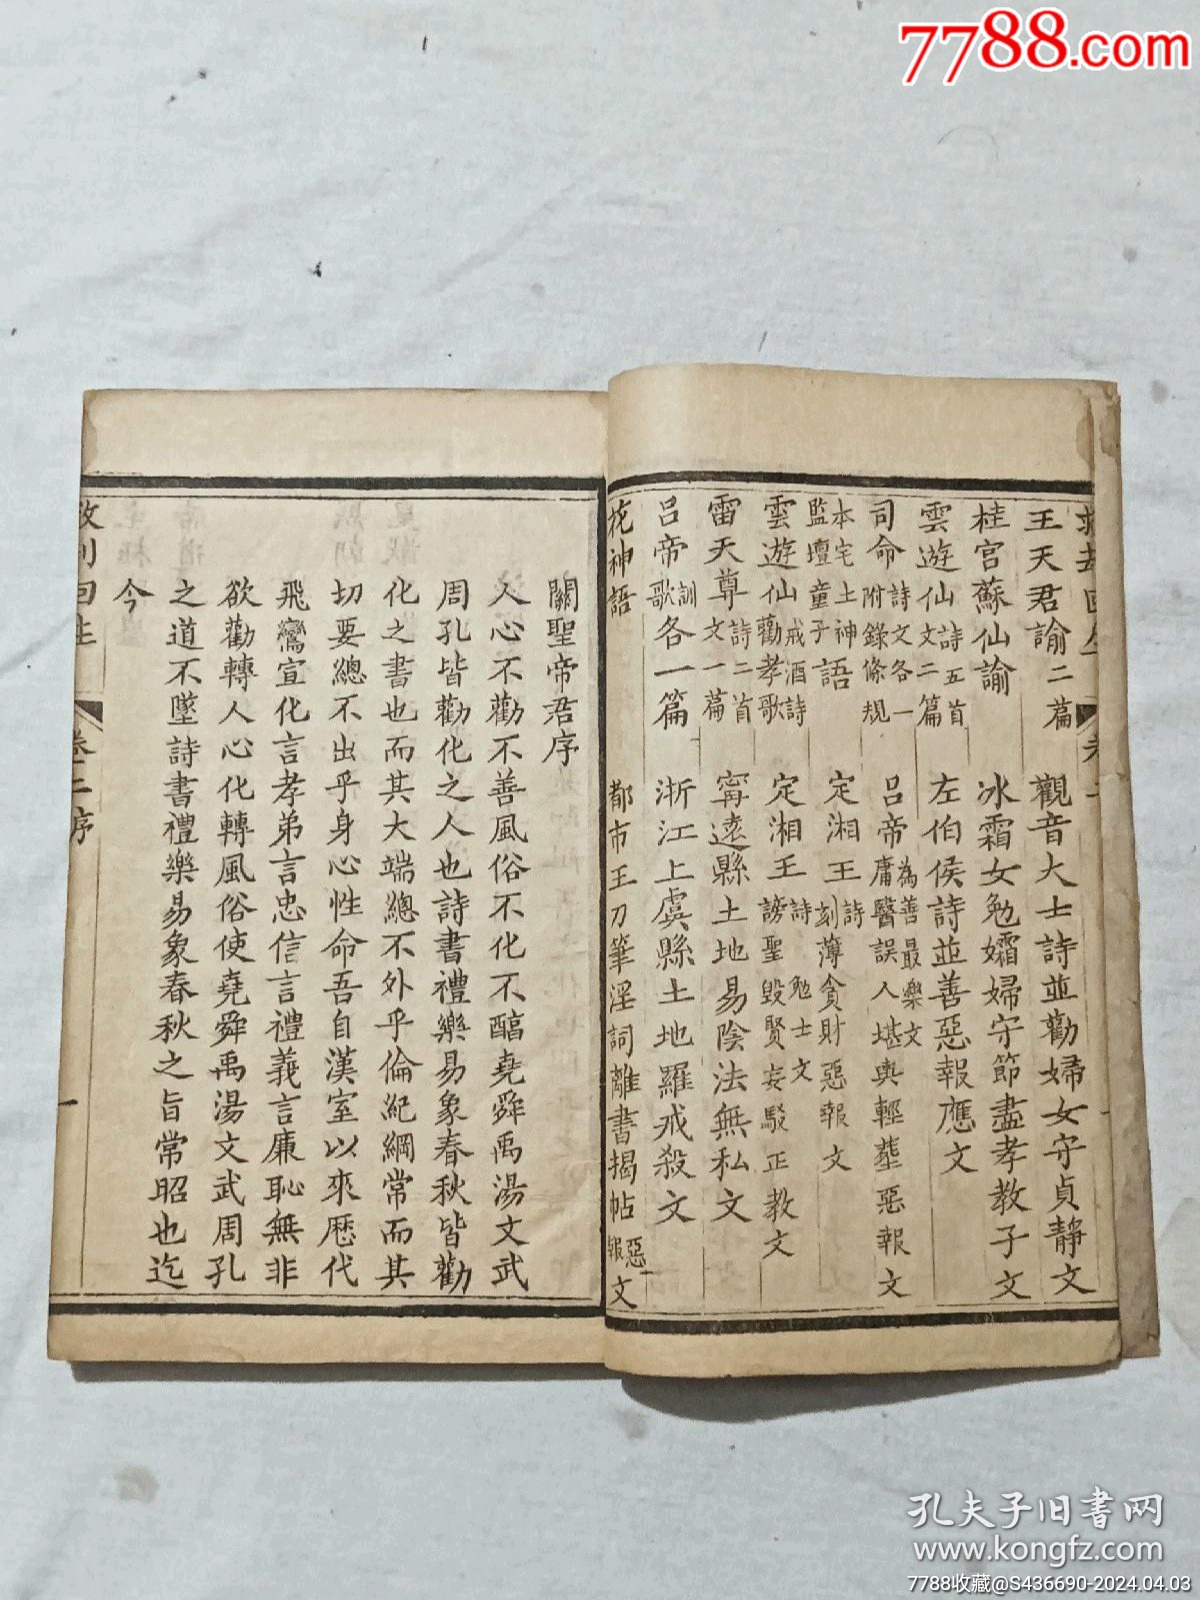 7788.com
王天君諭二篇
觀音大士詩並勸婦女守貞靜文
桂宮蘇仙諭
冰霜女勉孀婦守節盡孝教子文
雲遊仙詩五首文二篇
左伯侯詩並善惡報應文
司命詩文各一附錄條規
呂帝為善最樂文庸醫誤人堪輿輕葬惡報文
本宅土神監壇童子語
定湘王詩刻薄貪財惡報文
雲遊仙戒酒詩勸孝歌
定湘王詩勉士文謗聖毀賢妄駁正教文
雷天尊詩二首文一篇
甯遠縣土地易陰法無私文
呂帝訓歌各一篇
浙江上虞縣土地羅戒殺文
花神語
都市王刀筆淫詞離書揭帖惡報文
關聖帝君序
人心不勸不善風俗不化不醇堯舜禹湯文武
周孔皆勸化之人也詩書禮樂易象春秋皆勸
化之書也而其大端總不外乎倫紀綱常而其
切要總不出乎身心性命吾自漢室以來歷代
飛鸞宣化言孝弟言忠信言禮義言廉恥無非
欲勸轉人心化轉風俗使堯舜禹湯文武周孔
之道不墜詩書禮樂易象春秋之旨常昭也迄
今
回生 卷二序 一
孔夫子旧书网
www.kongfz.com
7788收藏@S436690-2024.04.03